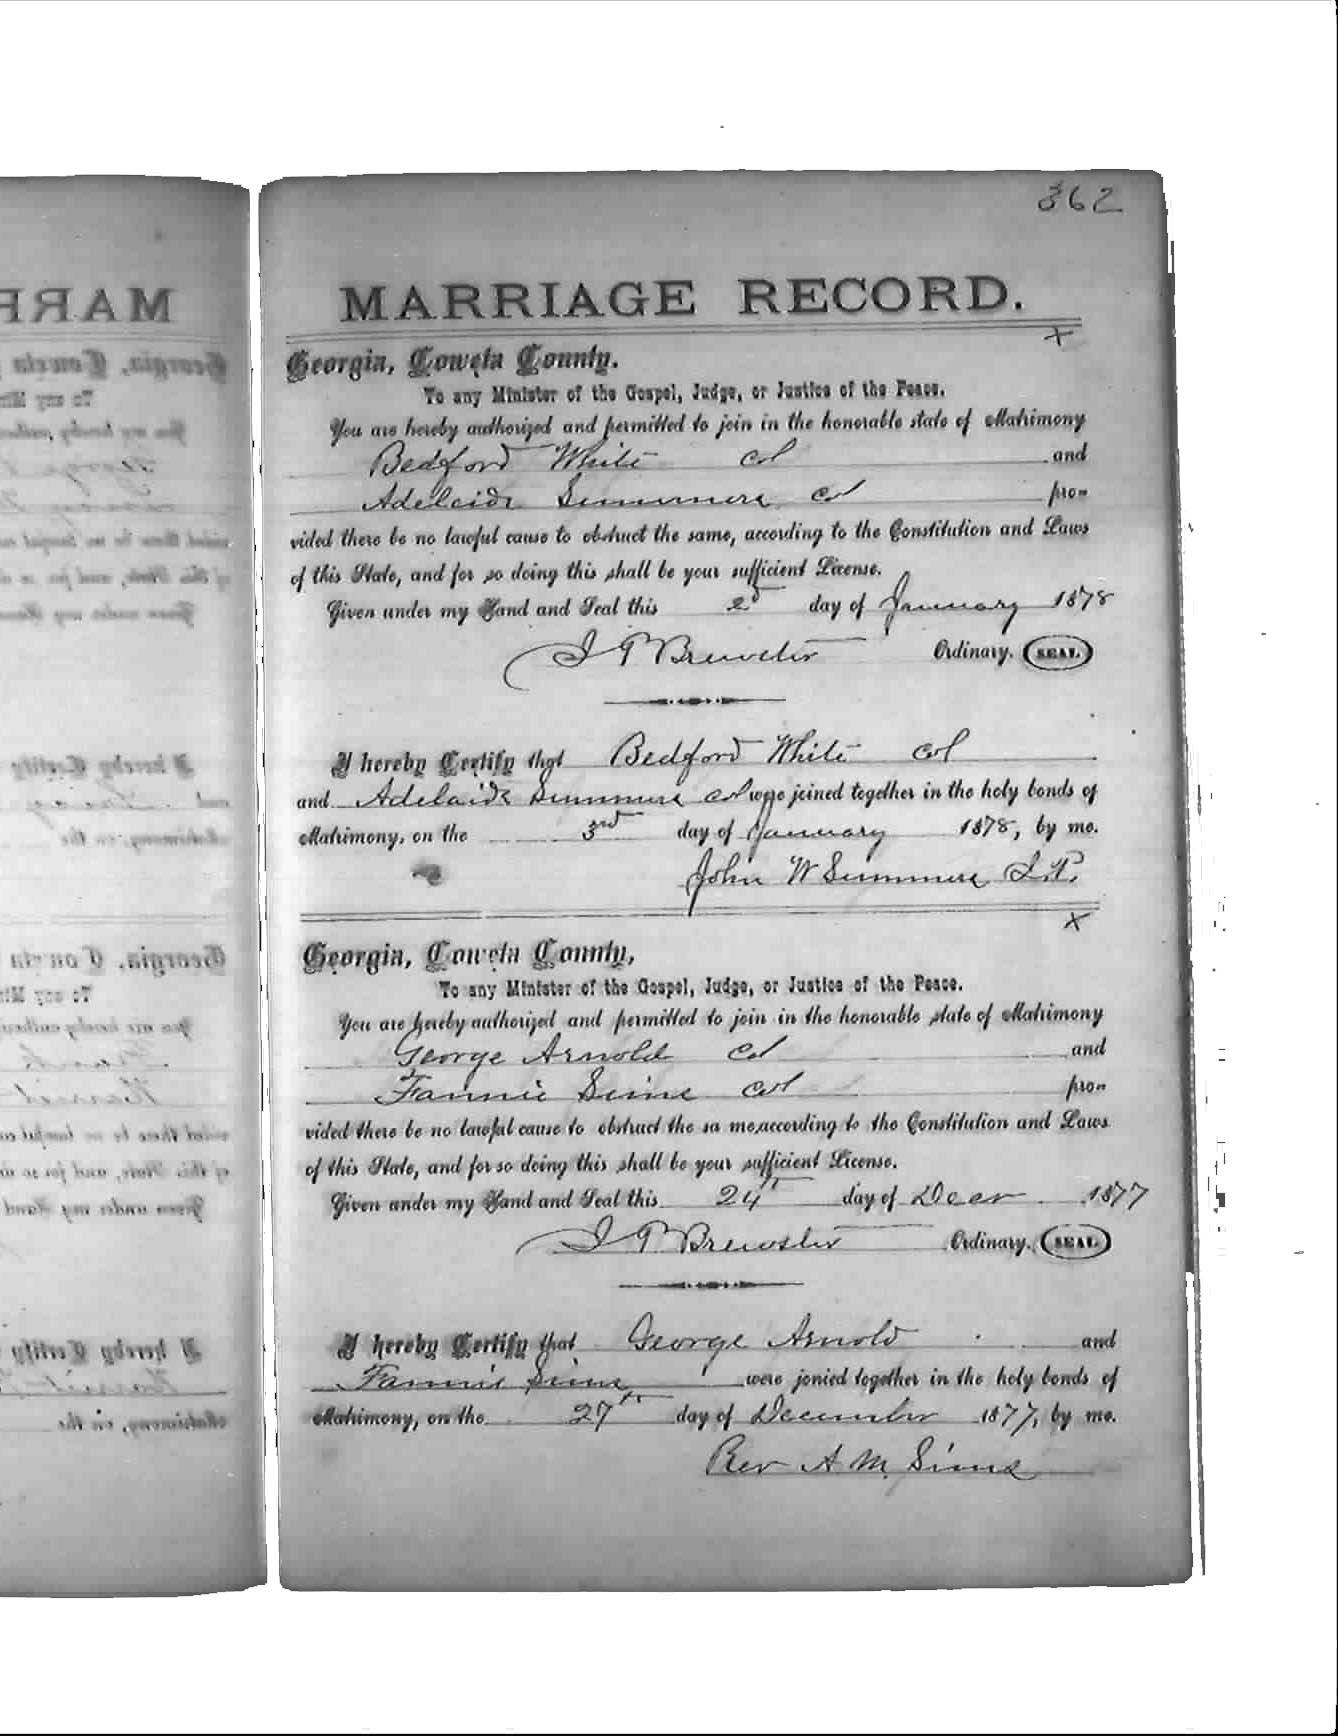 362
MARRIAGE RECORD.
x
Georgia, Coweta County.
To any Minister of the Gospel, Judge, or Justice of the Peace.
You are hereby authorized and permitted to join in the honorable state of Matrimony
Bedford White Col and
Adelaide Summers Col pro-
vided there be no lawful cause to obstruct the same, according to the Constitution and Laws
of this State, and for so doing this shall be your sufficient License.
Given under my Hand and Seal this 2d day of January 1878
J P Brewster Ordinary. SEAL
I hereby Certify that Bedford White Col
and Adelaide Summers Col were joined together in the holy bonds of
Matrimony, on the 3rd day of January 1878, by me.
John W Summers J.P.
x
Georgia, Coweta County,
To any Minister of the Gospel, Judge, or Justice of the Peace.
You are hereby authorized and permitted to join in the honorable state of Matrimony
George Arnold Col and
Fannie Sims Col pro-
vided there be no lawful cause to obstruct the sa me, according to the Constitution and Laws
of this State, and for so doing this shall be your sufficient License.
Given under my Hand and Seal this 24th day of Decr 1877
J P Brewster Ordinary. SEAL
I hereby Certify that George Arnold and
Fannie Sims were jonied together in the holy bonds of
Matrimony, on the 27th day of December 1877, by me.
Rev A M. Sims